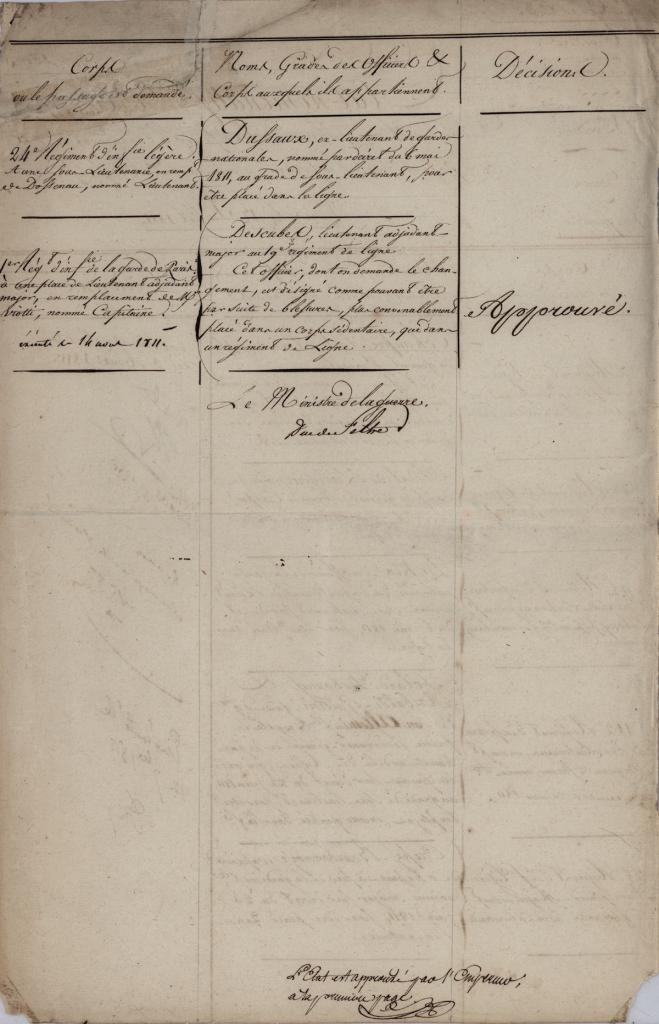 Corps
où le passage est demandé.
Noms, Grades des Officiers &
Corps auxquels ils appartiennent.
Décisions.
24e Régiment d'infie légère.
A une Sous-Lieutenance, en rempt
de Dossenau, nommé Lieutenant.
Dussaux, ex-lieutenant de gardes
nationales, nommé par décret du 6 mai
1811, au grade de sous-lieutenant, pour
être placé dans la ligne.
1er Régt d'infie de la garde de Paris
à une place de Lieutenant adjudant
major, en remplacement de Mr
nommé Capitaine.
exécuté le 14 aout 1811.
Descubes, lieutenant adjudant-
major au 19e régiment de ligne
Cet officier, dont on demande le chan-
gement, est désigné comme pouvant être
par suite de blessures, plus convenablement
placé dans un corps sédentaire, que dans
un régiment de Ligne.
Approuvé.
Le Ministre de la guerre,
Duc de Feltre
L'Etat est approuvé par l'Empereur,
à la première page